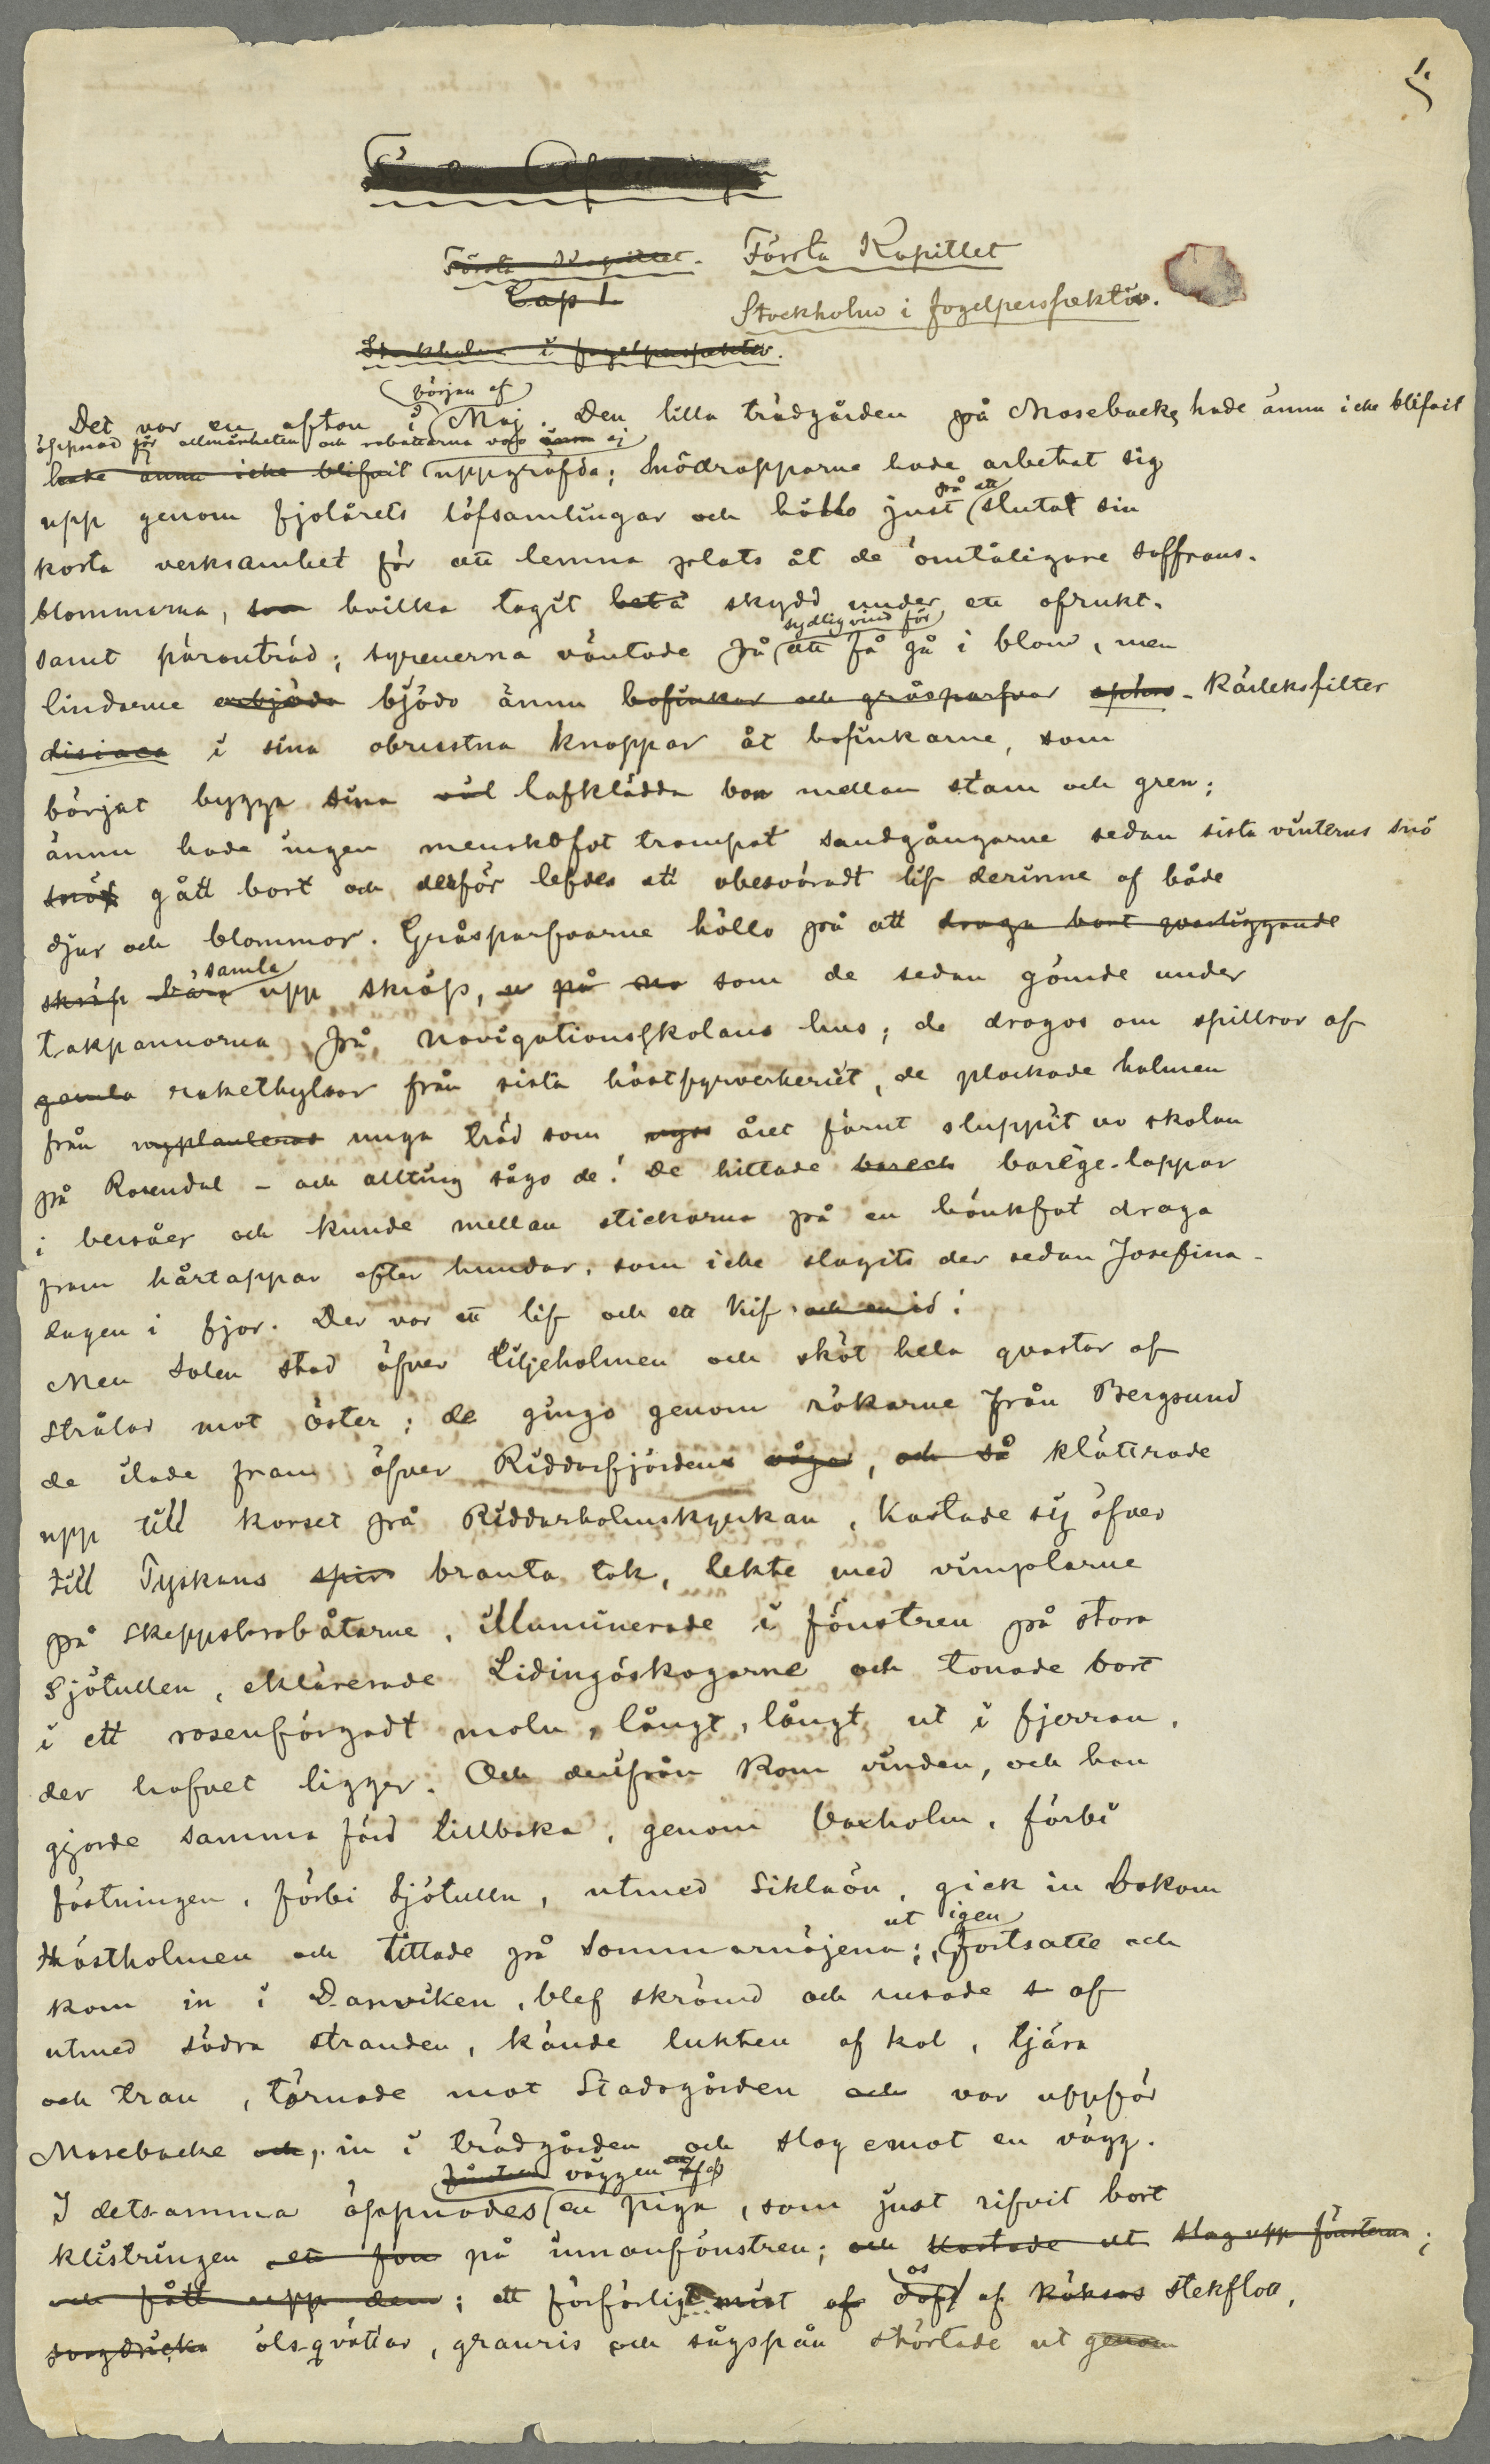 1.
Första Afdelningen
Första Kapitlet. Första Kapitlet
Cap 1. Stockholm i fogelperspektiv.
Stockholm i fogelperspektiv.
början af
Det var en afton i Maj. Den lilla trädgården på Mosebacke hade ännu icke blifvit
öppnad för allmänheten och rabatterna voro ännu ej
hade ännu icke blifvit uppgräfda; Snödropparne hade arbetat sig
på att
upp genom fjolårets löfsamlingar och höllo just slutat sin
korta verksamhet för att lemna plats åt de ömtåligare saffrans-
blommorna, som hvilka tagit skydd under ett ofrukt-
sydlig vind för
samt päronträd; syrenerna väntade på att få gå i blom, men
lindarne erbjödo bjödo ännu bofinkar och gråsparfvar aphro- Kärleksfilter
disiaca i sina obrustna knoppar åt bofinkarne, som
börjat bygga sina lafklädda bon mellan stam och gren;
ännu hade ingen menskofot trampat sandgångarne sedan sista vinterns snö
snö gått bort och derför lefdes ett obesväradt lif derinne af både
djur och blommor. Gråsparfvarne höllo på att draga bort qvarliggande
samla
skräp bära upp skräp, som de sedan gömde under
takpannorna på Navigationsskolans hus; de drogos om spillror af
gamla rakethylsor från sista höstfyrverkeriet, de plockade halmen
från nyplanterade unga träd som nyss året förut sluppit ur skolan
på Rosendal – och allting sågo de! De hittade barège-lappar
i bersåer och kunde mellan stickorna på en bänkfot draga
fram hårtappar efter hundar, som icke slagits der sedan Josefina-
dagen i fjor. Der var ett lif och ett kif och en id!
Men Solen stod öfver Liljeholmen och sköt hela qvastar af
strålar mot öster; de gingo genom rökarne från Bergsund
de ilade fram öfver Riddarfjärden vågor, och så klättrade
upp till korset på Riddarholmskyrkan, kastade sig öfver
till Tyskans spir branta tak, lekte med vimplarne
på skeppsbrobåtarne, illuminerade i fönstren på stora
Sjötullen, eklärerade Lidingöskogarne och tonade bort
i ett rosenfärgadt moln, långt, långt ut i fjerran,
der hafvet ligger. Och derifrån kom vinden, och han
gjorde samma färd tillbaka, genom Vaxholm, förbi
fästningen, förbi Sjötulln, utmed Siklaön, gick in bakom
ut igen
Hästholmen och tittade på Sommarnöjena; fortsatte och
kom in i Danviken, blef skrämd och rusade s af
utmed södra stranden, kände lukten af kol, tjära
och tran, törnade mot Stadsgården och var uppför
Mosebacke och, in i trädgården och slog emot en vägg.
fönstren väggen af
I detsamma öppnades en piga, som just rifvit bort
klistringen ett fön på innanfönstren; och kastade ut slog upp fönstren;
os
och fått upp dem; ett förfärligt af doft af köksos stekflott,
svagdricka ölsqvättar, granris och sågspån störtade ut genom